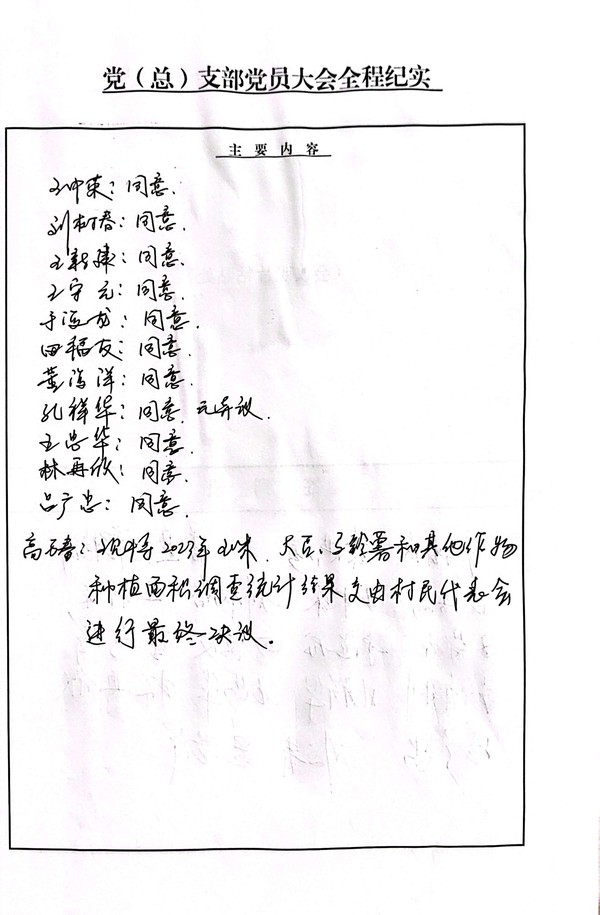 党（总）支部党员大会全程纪实
主要内容
王中荣：同意.
刘树春：同意.
王新建：同意.
王守元：同意.
于海龙：同意.
田福友：同意.
董海洋：同意.
孔祥华：同意，无异议.
王忠华：同意.
林再欣：同意.
吕广忠：同意.
高春：现将2023年玉米、大豆、马铃薯和其他作物
种植面积调查统计结果交由村民代表会
进行最终决议。